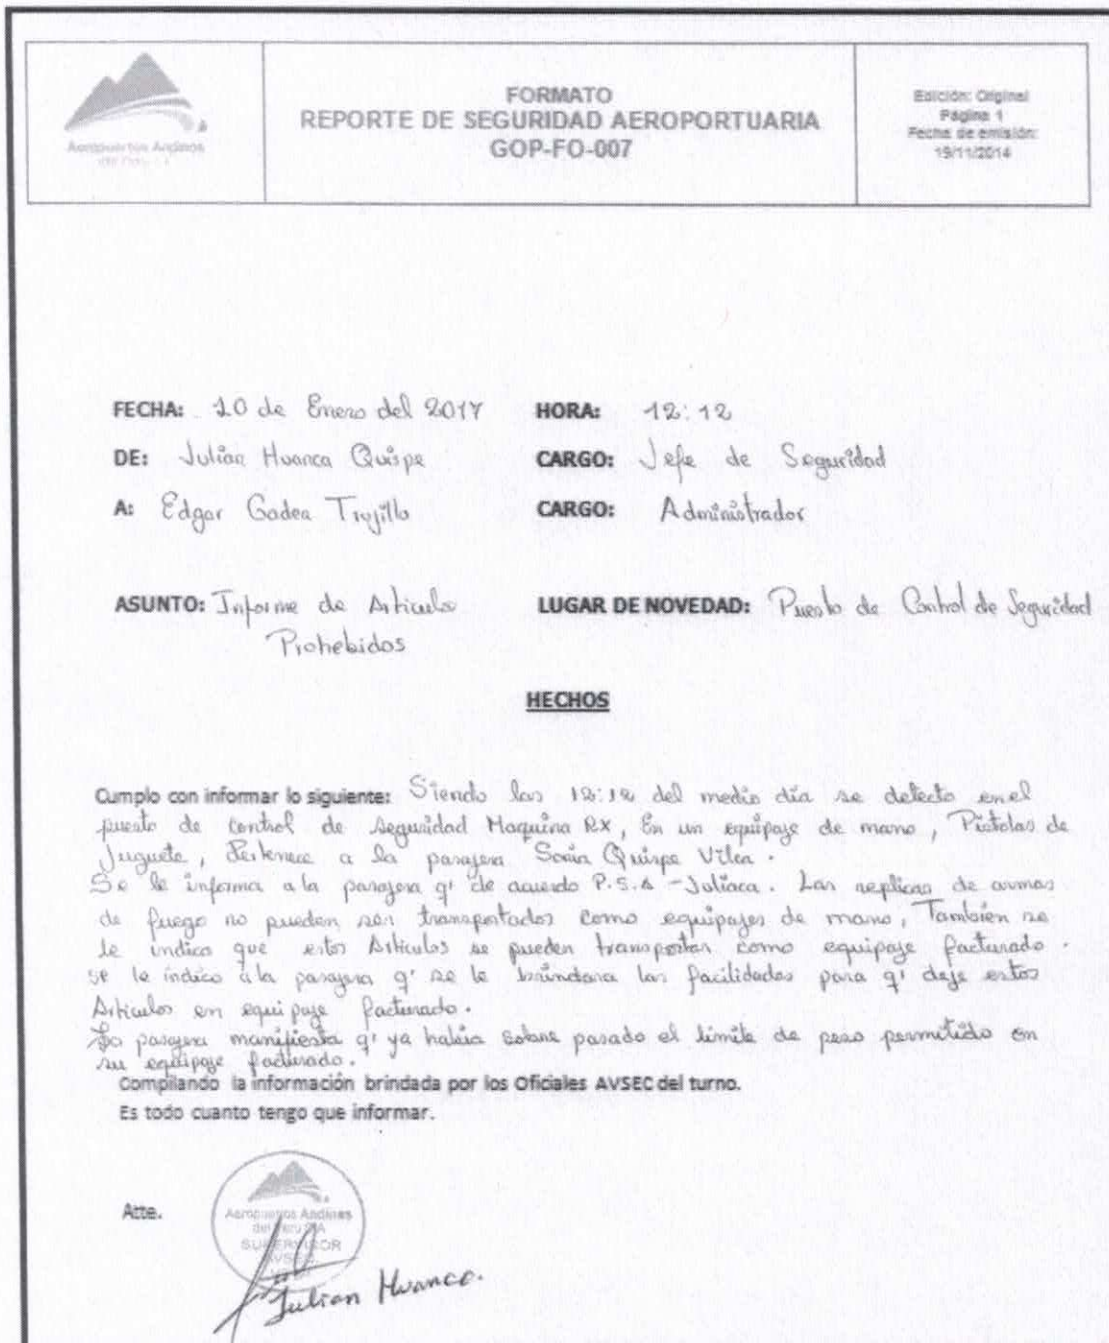 Aeropuertos Andinos
del Perú S.A.
FORMATO
REPORTE DE SEGURIDAD AEROPORTUARIA
GOP-FO-007
Edición: Original
Página 1
Fecha de emisión:
19/11/2014
FECHA: 10 de Enero del 2017 HORA: 12:12
DE: Julian Huanca Quispe CARGO: Jefe de Seguridad
A: Edgar Gadea Trujillo CARGO: Administrador
ASUNTO: Informe de Articulo LUGAR DE NOVEDAD: Puesto de Control de Seguridad
Prohebidos
HECHOS
Cumplo con informar lo siguiente: Siendo las 12:12 del medio día se detecto en el
puesto de control de seguridad Maquina RX, En un equipaje de mano, Pistolas de
Juguete, Pertenece a la pasajera Sonia Quispe Vilca.
Se le informa a la pasajera q' de acuerdo P.S.A - Juliaca. Las replicas de armas
de fuego no pueden ser transportados como equipajes de mano, También se
le indico que estos Articulos se pueden transportar como equipaje facturado.
se le indico a la pasajera q' se le brindara las facilidades para q' deje estos
Articulos en equipaje facturado.
La pasajera manifiesta q' ya habia sobre pasado el limite de peso permitido en
su equipaje facturado.
Compilando la información brindada por los Oficiales AVSEC del turno.
Es todo cuanto tengo que informar.
Atte.
Aeropuertos Andinos
del Perú S.A.
SUPERVISOR
AVSEC
Julian Huanca.